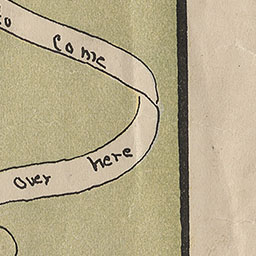 to come
over here